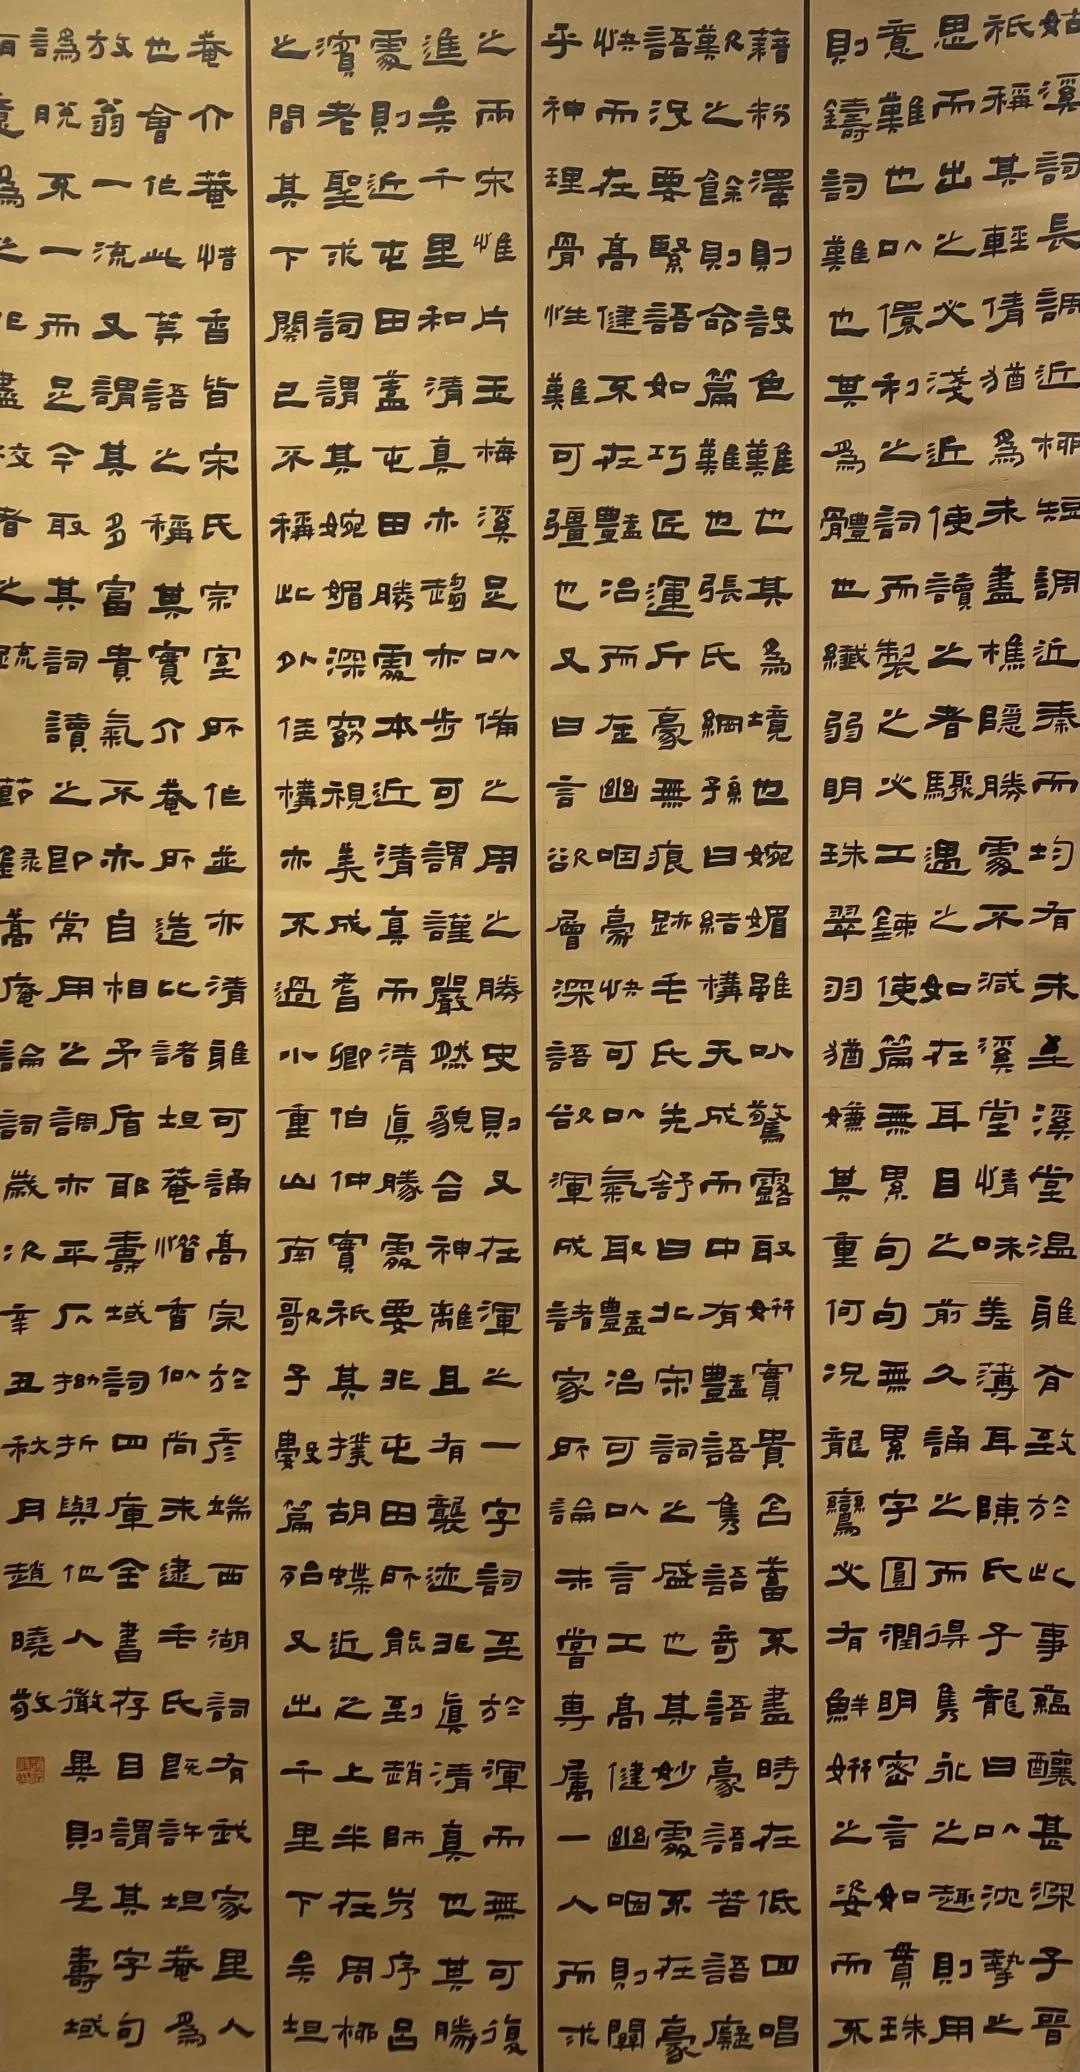 姑溪詞長調近柳短調近秦而均有未至溪堂溫雅有致於此事蘊釀甚深子晉
祇稱其輕倩猶為未盡樵隱勝處不減溪堂情味差薄耳陳氏子龍曰以沈摯之
思而出之必淺近使讀之者驟遇之如在耳目之前久誦之而得雋永之趣則用
意難也以儇利之詞而製之必工鍊使篇無累句句無累字圓潤明密言如貫珠
則鑄詞難也其為體也纖弱明珠翠羽猶嫌其重何況龍鸞必有鮮妍之姿而不
藉粉澤則設色難也其為境也婉媚雖以驚露取妍實貴含蓄不盡時在低回唱
歎之餘則命篇難也張氏綱孫曰結構天成而中有豔語雋語奇語豪語苦語癡
語沒要緊語如巧匠運斤豪無痕跡毛氏先舒曰北宋詞之盛也其妙處不在豪
快而在高健不在豔冶而在幽咽豪快可以氣取豔冶可以言工高健幽咽則關
乎神理骨性難可彊也又曰言欲層深語欲渾成諸家所論未嘗專屬一人而求
之兩宋惟片玉梅溪足以備之周之勝史則又在渾之一字詞至於渾而無可復
進矣千里和清真亦趨亦步可謂謹嚴然貌合神離且有襲迹非真清真也其勝
處則近屯田蓋屯田勝處本近清真而清真勝處要非屯田所能到趙師岕序呂
濱老聖求詞謂其婉媚深窈視美成耆卿伯仲實祇其撲胡蝶近之上半在周柳
之間其下闋已不稱此外佳構亦不過小重山南歌子數篇殆又出千里下矣坦
菴介菴惜香皆宋氏宗室所作並亦清雅可誦高宗於彥端西湖詞有我家里人
也會作此等語之稱其實介菴所造比諸坦菴憯香似尚未逮毛氏既許坦菴為
放翁一流又謂其多富貴氣不亦自相矛盾耶壽域詞四庫全書存目謂其字句
譌脫不一而足今取其詞讀之即常用之調亦平仄拗折與他人微異則是壽域
有意為之非盡校者之疏 節錄蒿庵論詞歲次辛丑秋月趙曉敬